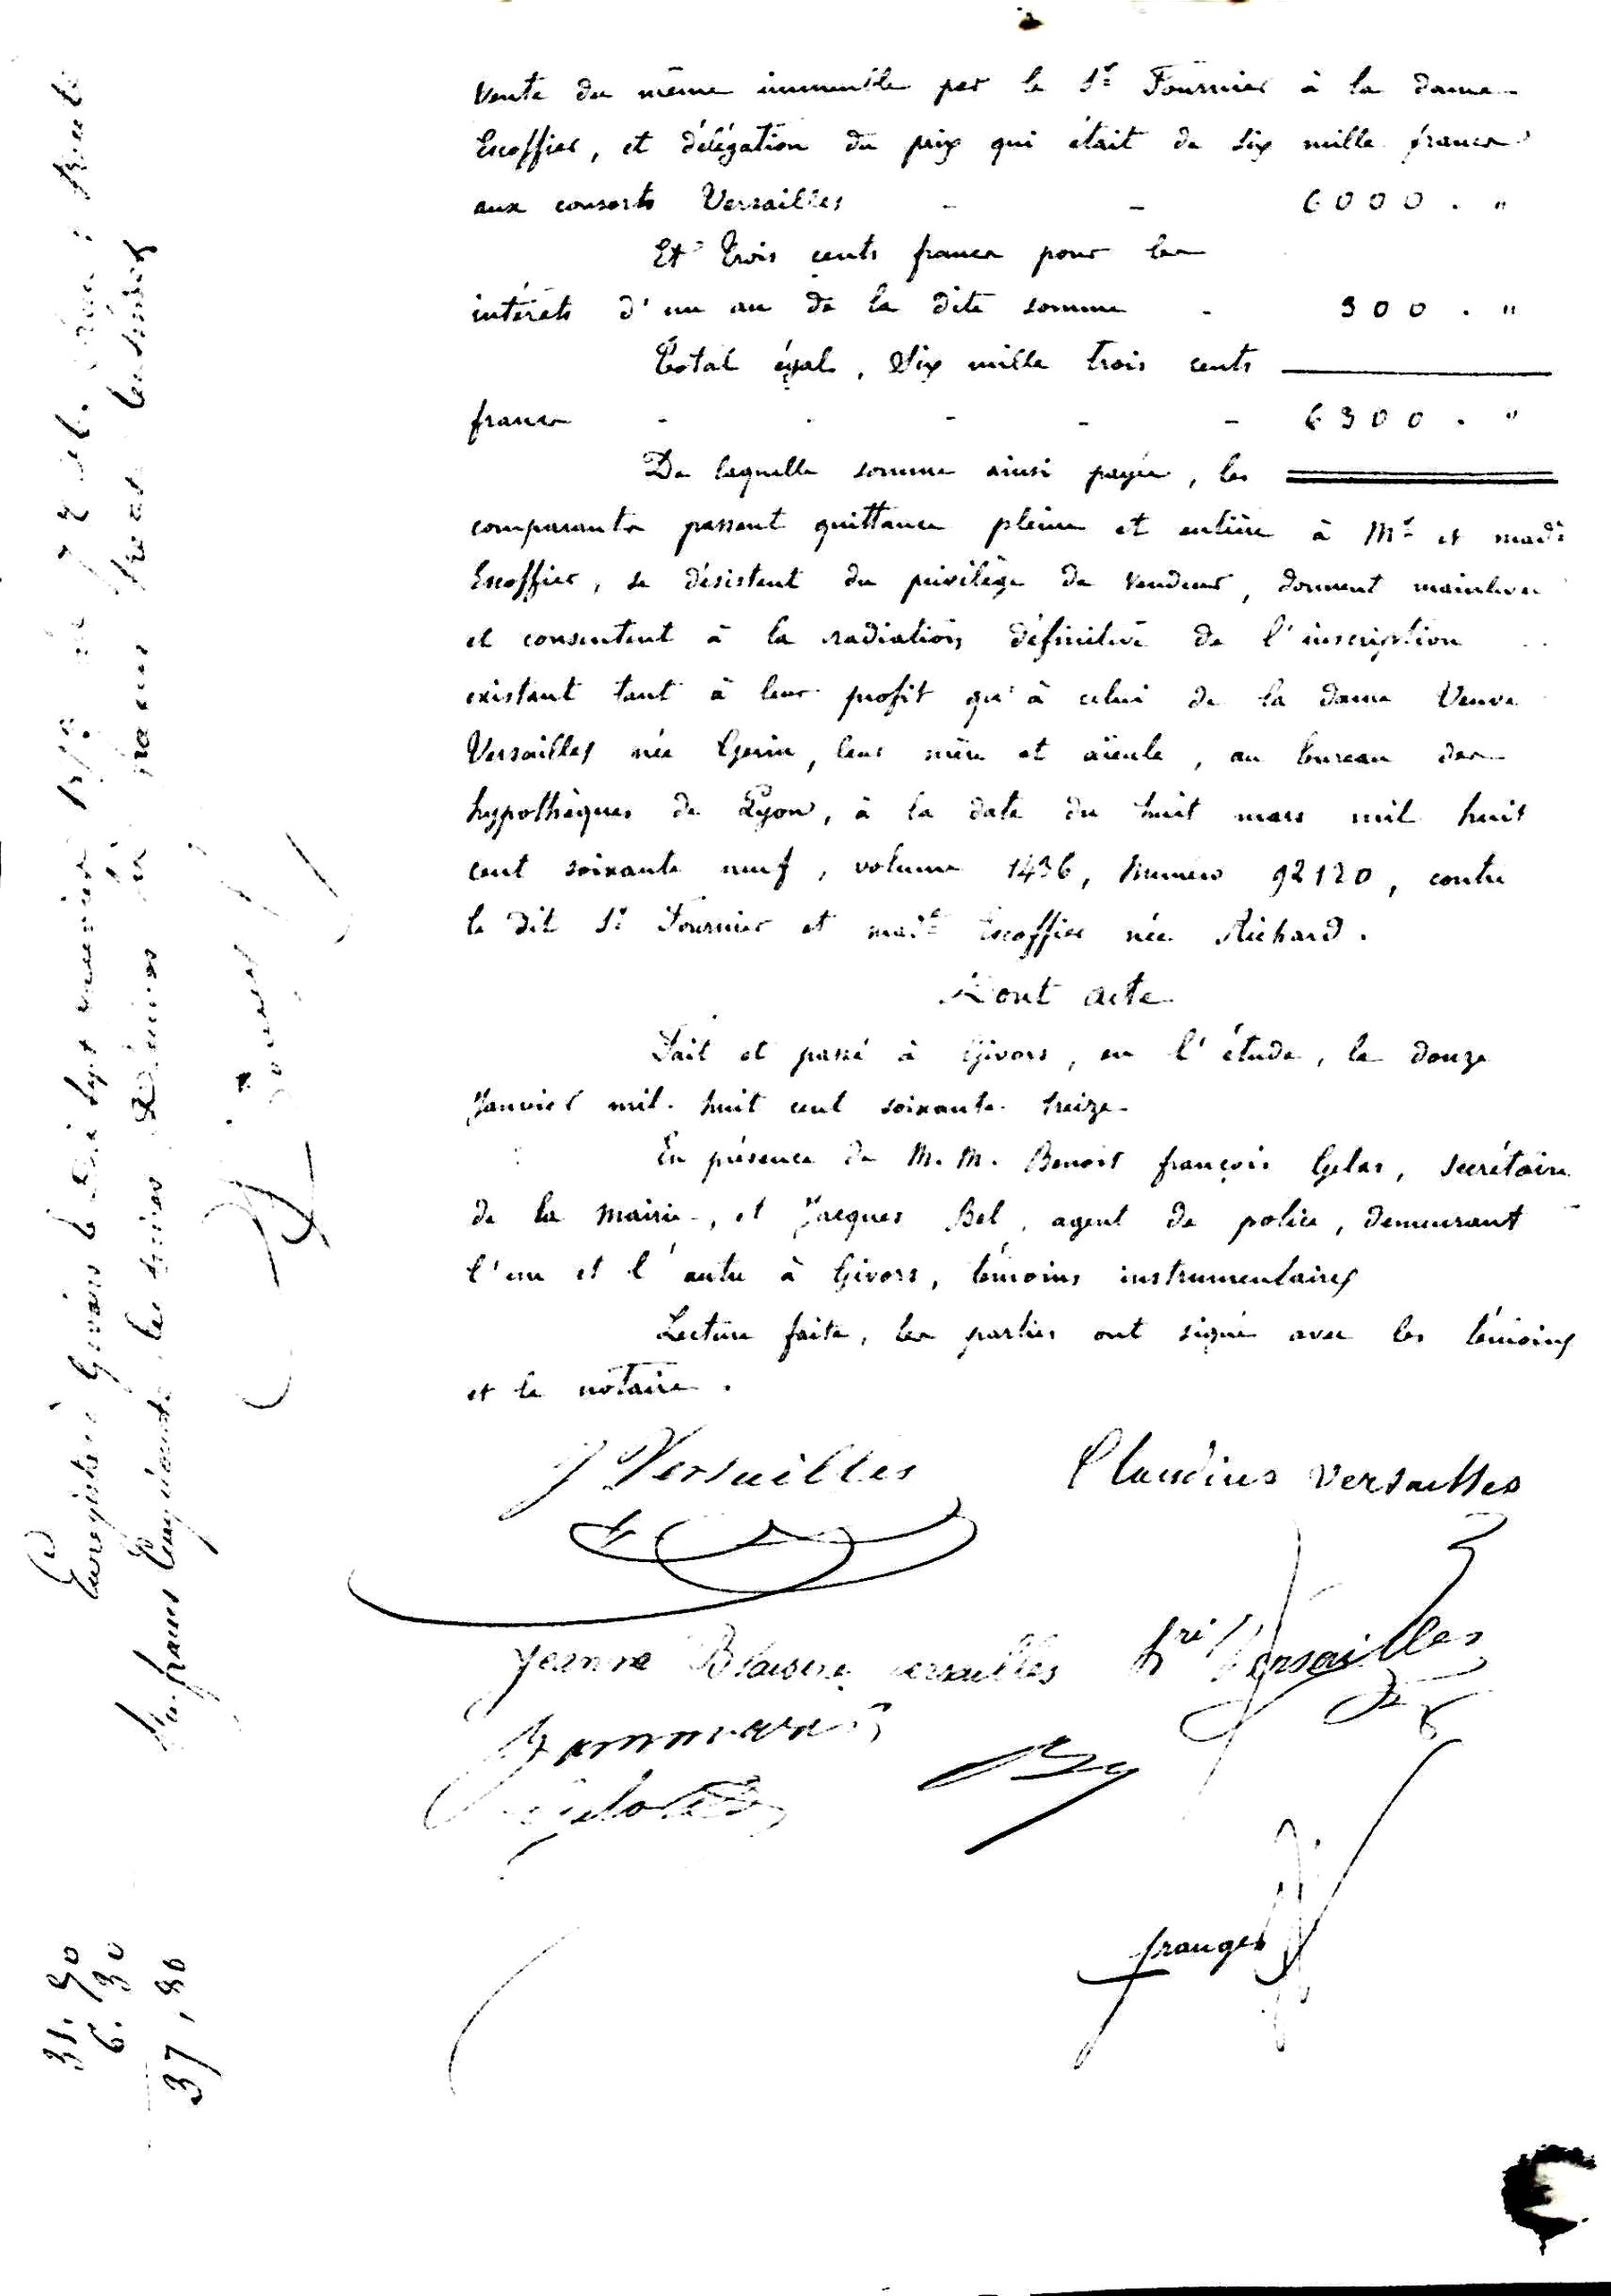 Vente du même immeuble par le Sr Fournier à la dame
Escoffier, et délégation du prix qui était de six mille francs
aux consorts Versailles - - 6000 . "
Et trois cents francs pour les
intérêts d'un an de la dite somme - 300 . "
Total égal, Six mille trois cents
francs - - - - - 6300 . "
De laquelle somme ainsi payée, les
comparants passent quittance pleine et entière à Mr et made
Escoffier, se désistent du privilège de vendeur, donnent mainlevée
et consentent à la radiation définitive de l'inscription
existant tant à leur profit qu'à celui de la dame Veuve
Versailles née Gerin, leur mère et aïeule, au bureau des
hypothèques de Lyon, à la date du huit mars mil huit
cent soixante neuf, volume 1436, numéro 92120, contre
le dit Sr Fournier et made Escoffier née Richard.
Dont acte
Fait et passé à Givors, en l'étude, le douze
Janvier mil huit cent soixante treize
En présence de M. M. Benoit françois Gelas, secrétaire
de la mairie, et Jacques Bel, agent de police, demeurant
l'un et l'autre à Givors, témoins instrumentaires
Lecture faite, les parties ont signé avec les témoins
et le notaire.
J Versailles Claudius Versailles
Jeanne Blaisine Versailles fri Versailles
franges
Enregistré à Givors le dix sept janvier
francs
31.50
6.30
37,80